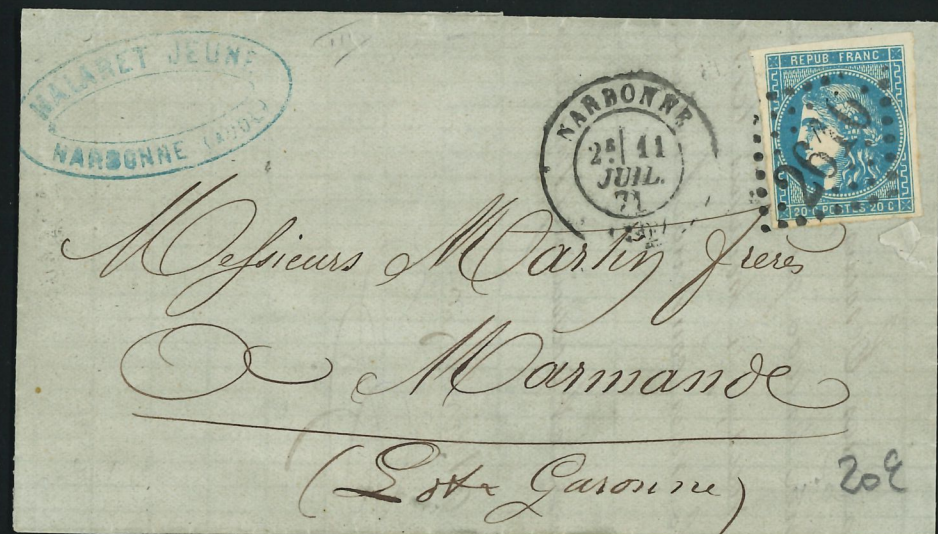 MALARET JEUNE
NARBONNE (AUDE)
NARBONNE
2E 11
JUIL.
71
REPUB FRANC
2616
20 C POSTES 20 C
Messieurs Martin frères
A Marmande
(Lot & Garonne)
20€